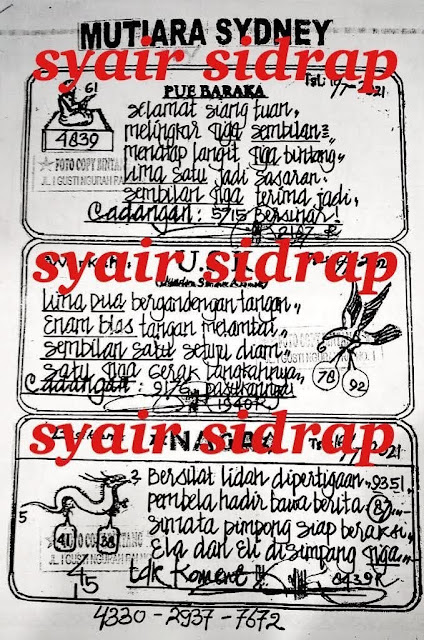 MUTIARA SYDNEY
syair sidrap
PUE BARAKA
61
4839
FOTO COPY BINTANG
JL. I GUSTI NGURAH RAI
Selamat siang tuan,,
melingkar tiga sembilan
menatap langit tiga bintang,,
lima satu jadi sasaran.
sembilan tiga terima jadi,
Cadangan : 5715 Bersinar!
syair sidrap
Lima Dua bergandengan tangan,,
Enam blas tangan melambai,,
sembilan satu setuju diam,,
satu tiga gerak langkahnya,,
Cadangan : 9176
78
92
syair sidrap
NAGA
Bersilat lidah dipertigaan,, 9351
pembela hadir bawa berita (87)
simata pimpong siap beraksi,,
Ela dan Eli disimpang tiga,,
tdk Koment
8439
2
5
41
38
4
1
5
4330-2937-7672